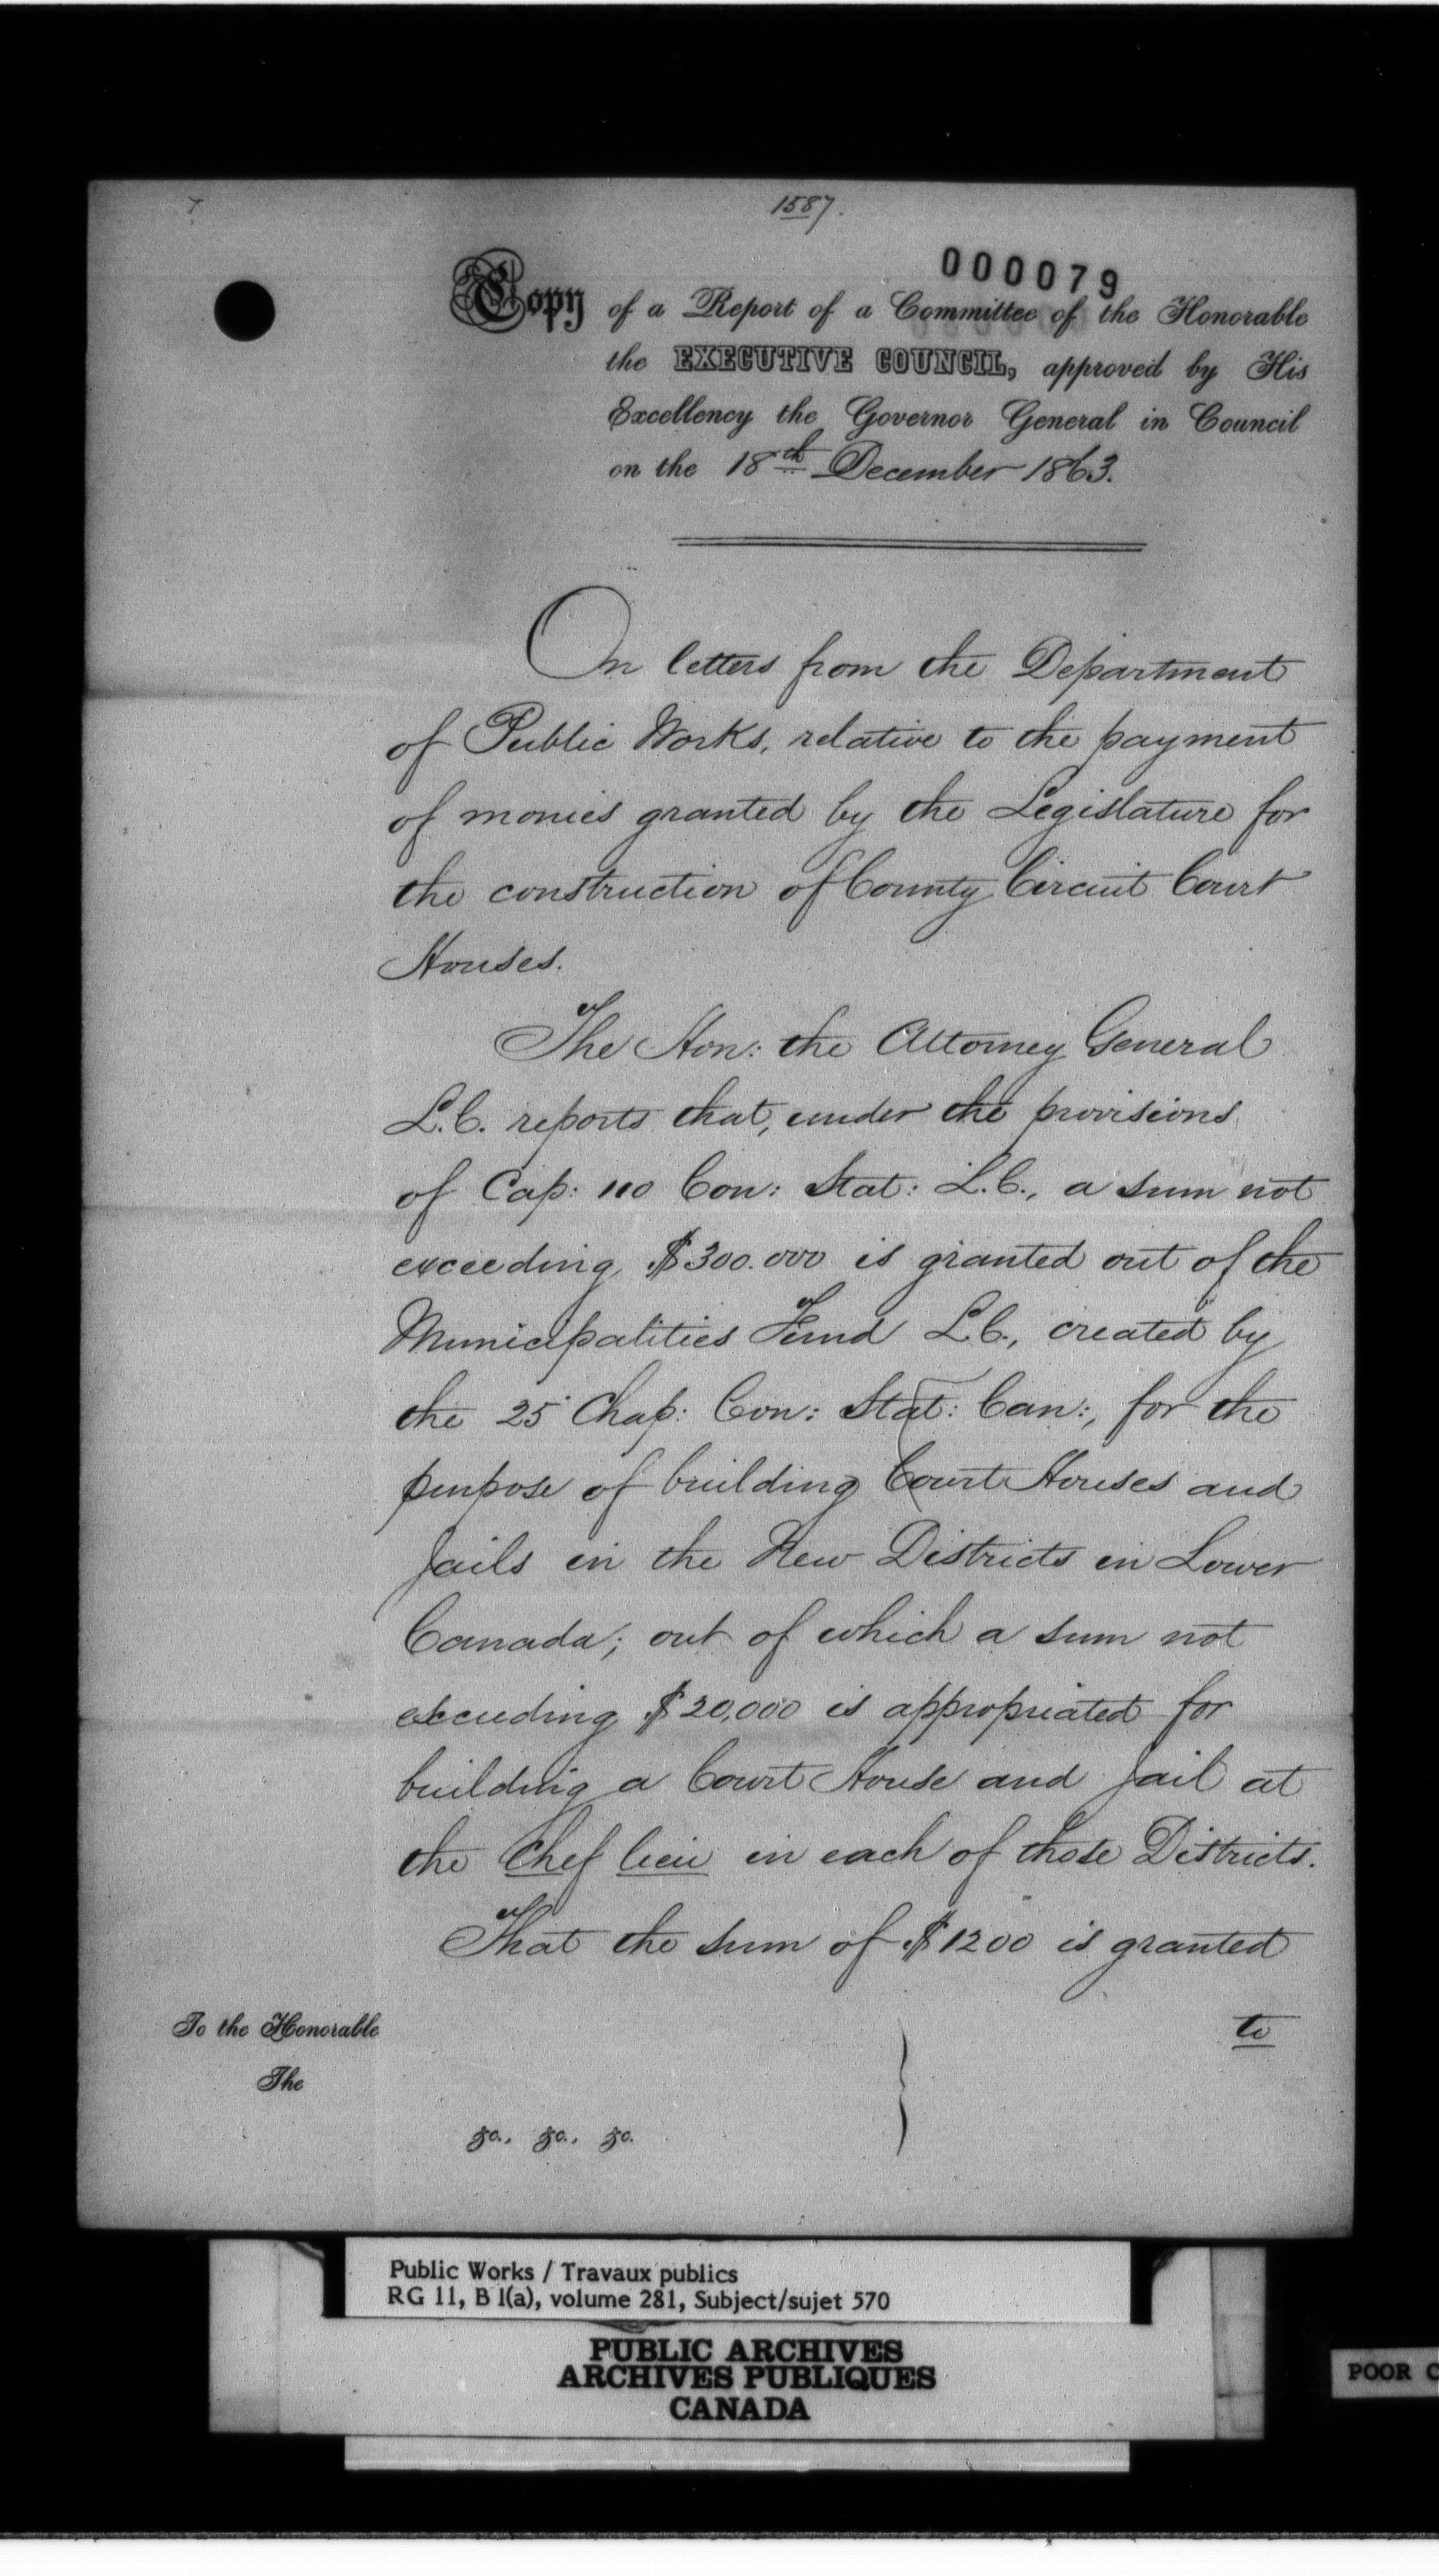 1587.
000079
Copy of a Report of a Committee of the Honorable
the EXECUTIVE COUNCIL, approved by His
Excellency the Governor General in Council
on the 18th December 1863.
On letters from the Department
of Public Works, relative to the payment
of monies granted by the Legislature for
the construction of County Circuit Court
Houses.
The Hon: the Attorney General
L.C. reports that, under the provisions
of Cap: 110 Con: Stat: L.C., a sum not
exceeding $300.000 is granted out of the
Municipalities Fund L.C., created by
the 25 Chap: Con: Stat: Can:, for the
purpose of building Court Houses and
Jails in the New Districts in Lower
Canada; out of which a sum not
exceeding $20,000 is appropriated for
building a Court House and Jail at
the Chef lieu in each of those Districts.
That the sum of $1200 is granted
to
To the Honorable
The
&c., &c., &c.
Public Works / Travaux publics
RG 11, B 1(a), volume 281, Subject/sujet 570
PUBLIC ARCHIVES
ARCHIVES PUBLIQUES
CANADA
POOR C